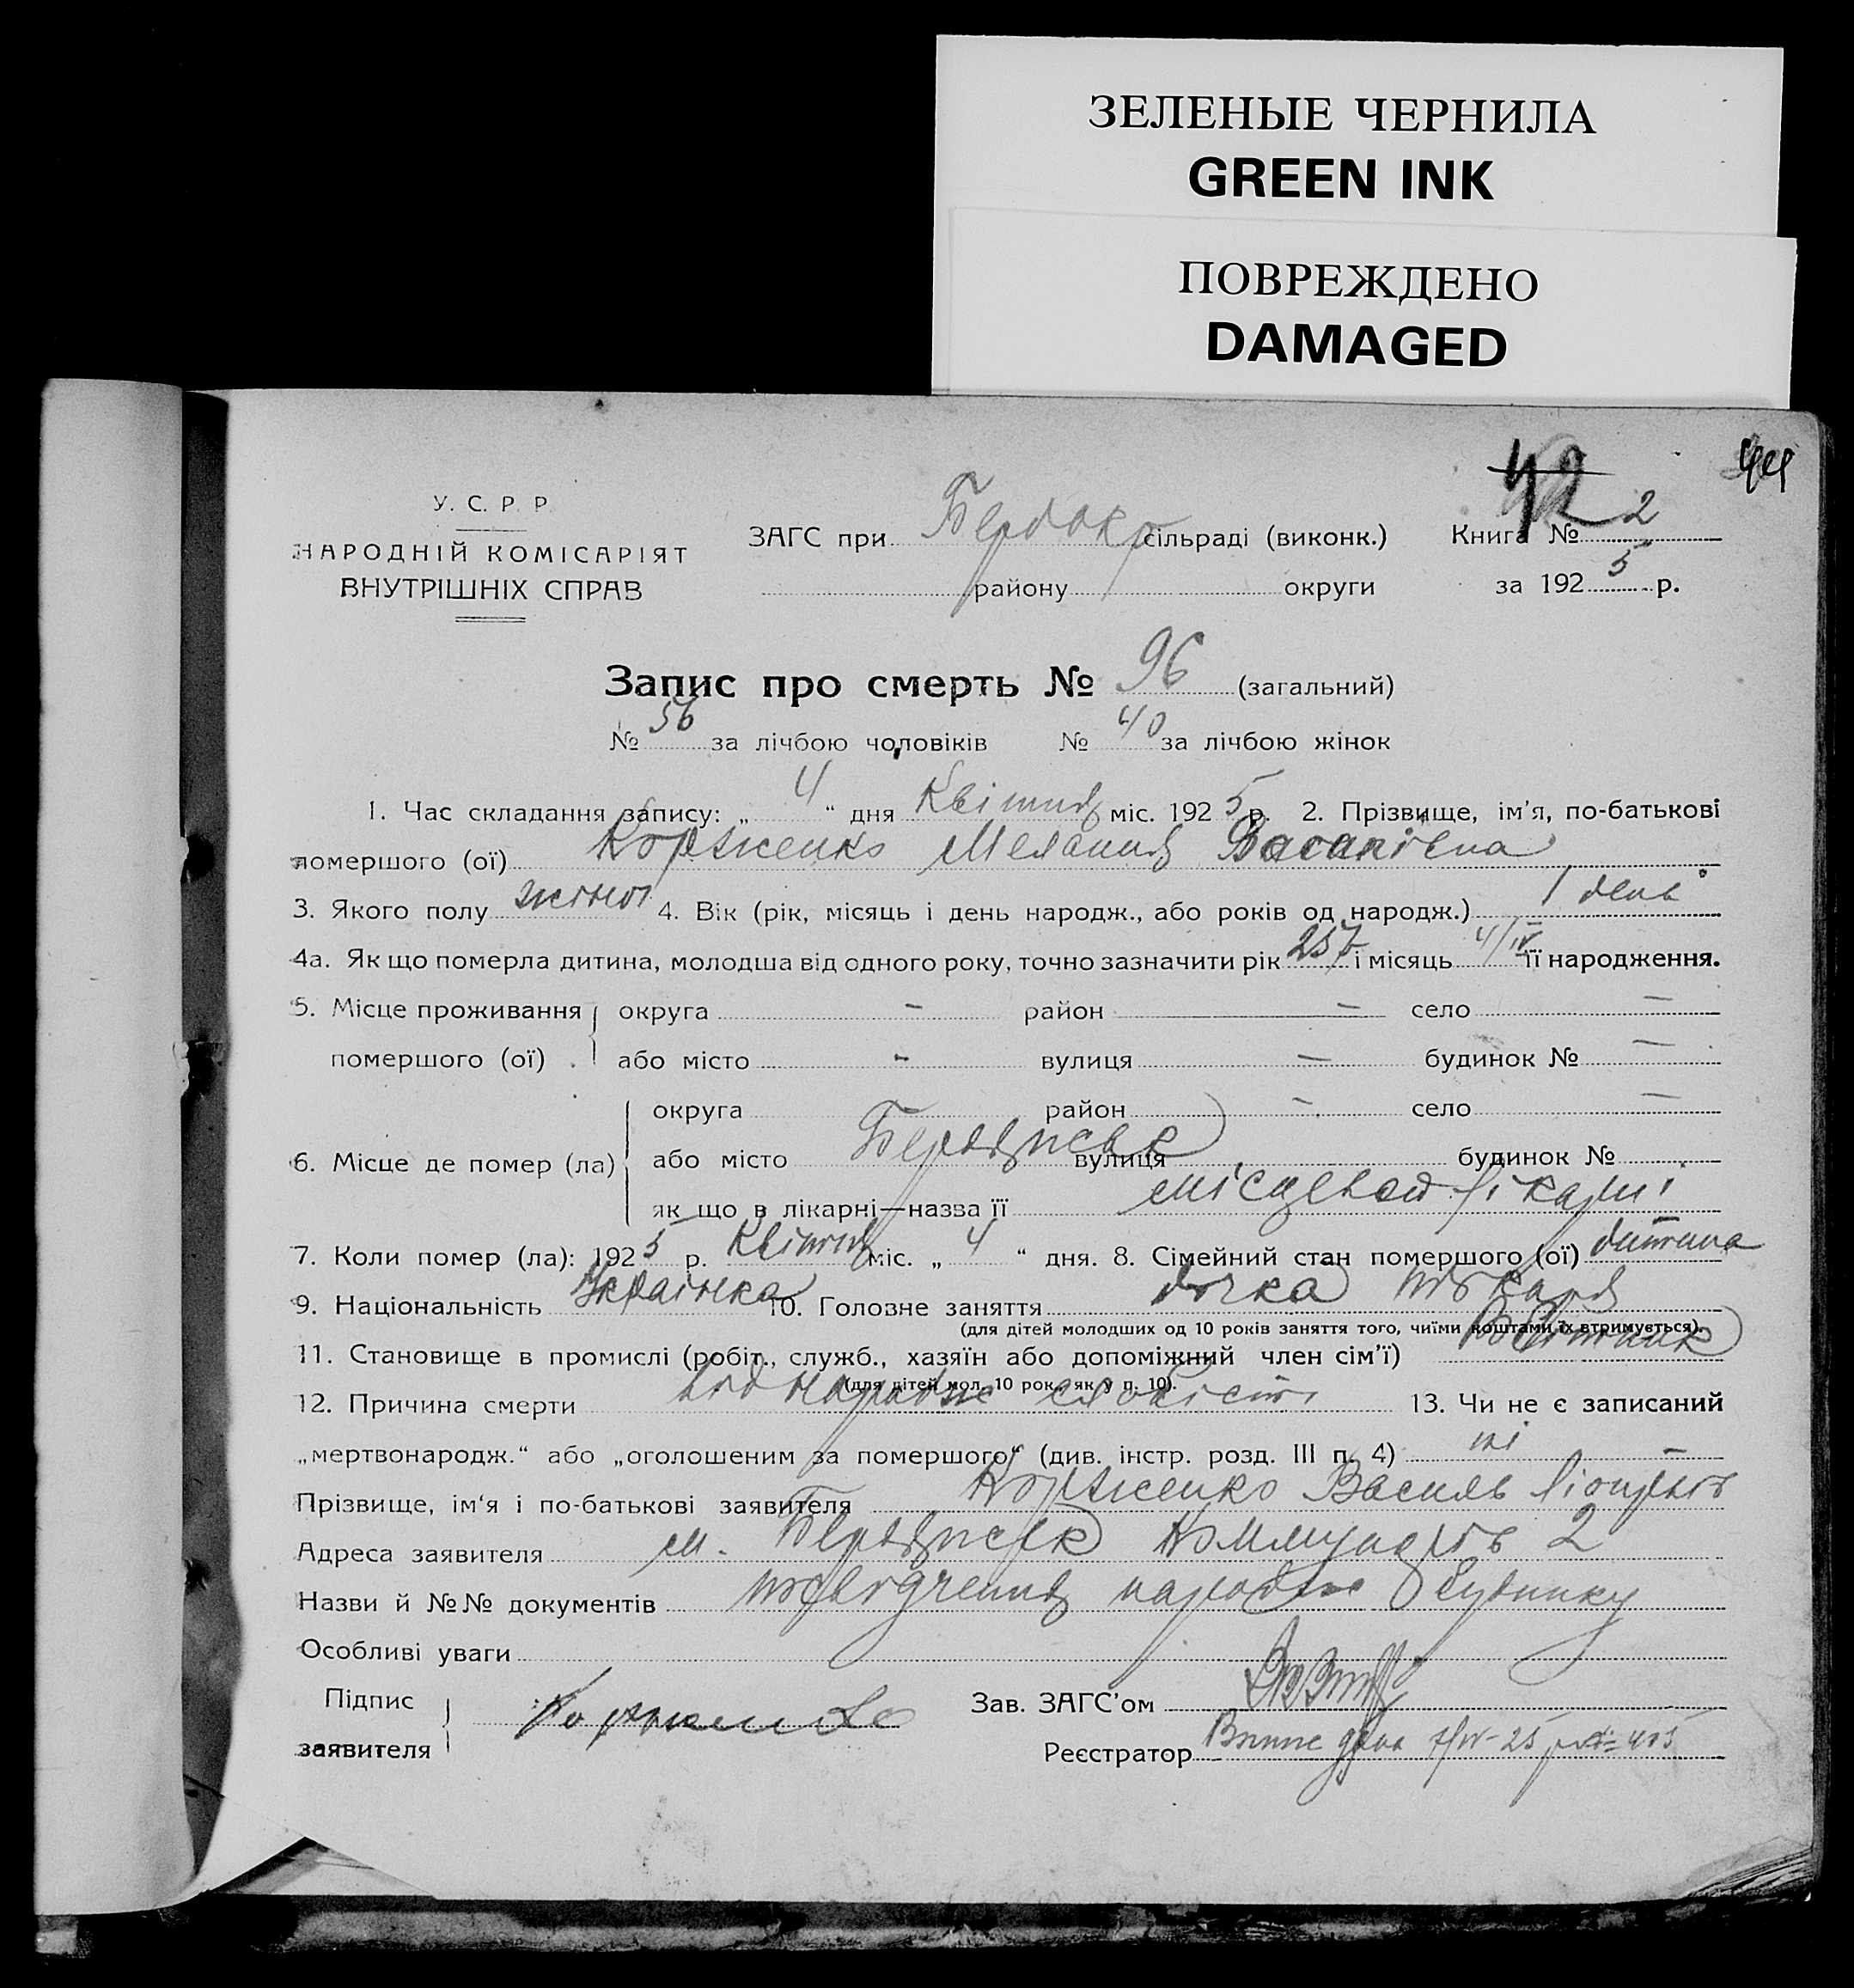 ЗЕЛЕНЫЕ ЧЕРНИЛА
GREEN INK
ПОВРЕЖДЕНО
DAMAGED
42 44
У. С. Р. Р.
НАРОДНІЙ КОМІСАРІЯТ
ВНУТРІШНІХ СПРАВ
ЗАГС при Бердокр сільраді (виконк.) Книга № 2
району округи за 1925 р.
Запис про смерть № 96 (загальний)
№ 56 за лічбою чоловіків № 40 за лічбою жінок
1. Час складання запису: „ 4 “ дня Квітня міс. 1925 р. 2. Прізвище, ім'я, по-батькові
помершого (ої) Корженко Меланія Василівна
3. Якого полу жіноч 4. Вік (рік, місяць і день народж., або років од народж.) 1 день
4а. Як що померла дитина, молодша від одного року, точно зазначити рік 25 і місяць 4/IV її народження.
5. Місце проживання округа – район – село –
помершого (ої) або місто - вулиця – будинок № –
округа район – село –
6. Місце де помер (ла) або місто Бердянськ вулиця будинок №
як що в лікарні—назва її місцевой лікарні
7. Коли помер (ла): 1925 р. Квітня міс. „ 4 “ дня. 8. Сімейний стан помершого (ої) дитина
9. Національність Українка 10. Головне заняття дочка токаря
(для дітей молодших од 10 років заняття того, чиїми коштами їх втримується)
11. Становище в промислі (робіт., служб., хазяїн або допоміжний член сім'ї) Робітник
(для дітей мол. 10 рок., як у п. 10).
12. Причина смерти від народж слабісті 13. Чи не є записаний
„мертвонародж.“ або „оголошеним за помершого“ (див. інстр. розд. III п. 4) ні
Прізвище, ім'я і по-батькові заявителя Корженко Василь
Адреса заявителя м. Бердянськ Коммунарів 2
Назви й №№ документів посвідчення народж будинку
Особливі уваги
Підпис Корженко Зав. ЗАГС'ом
заявителя Реєстратор